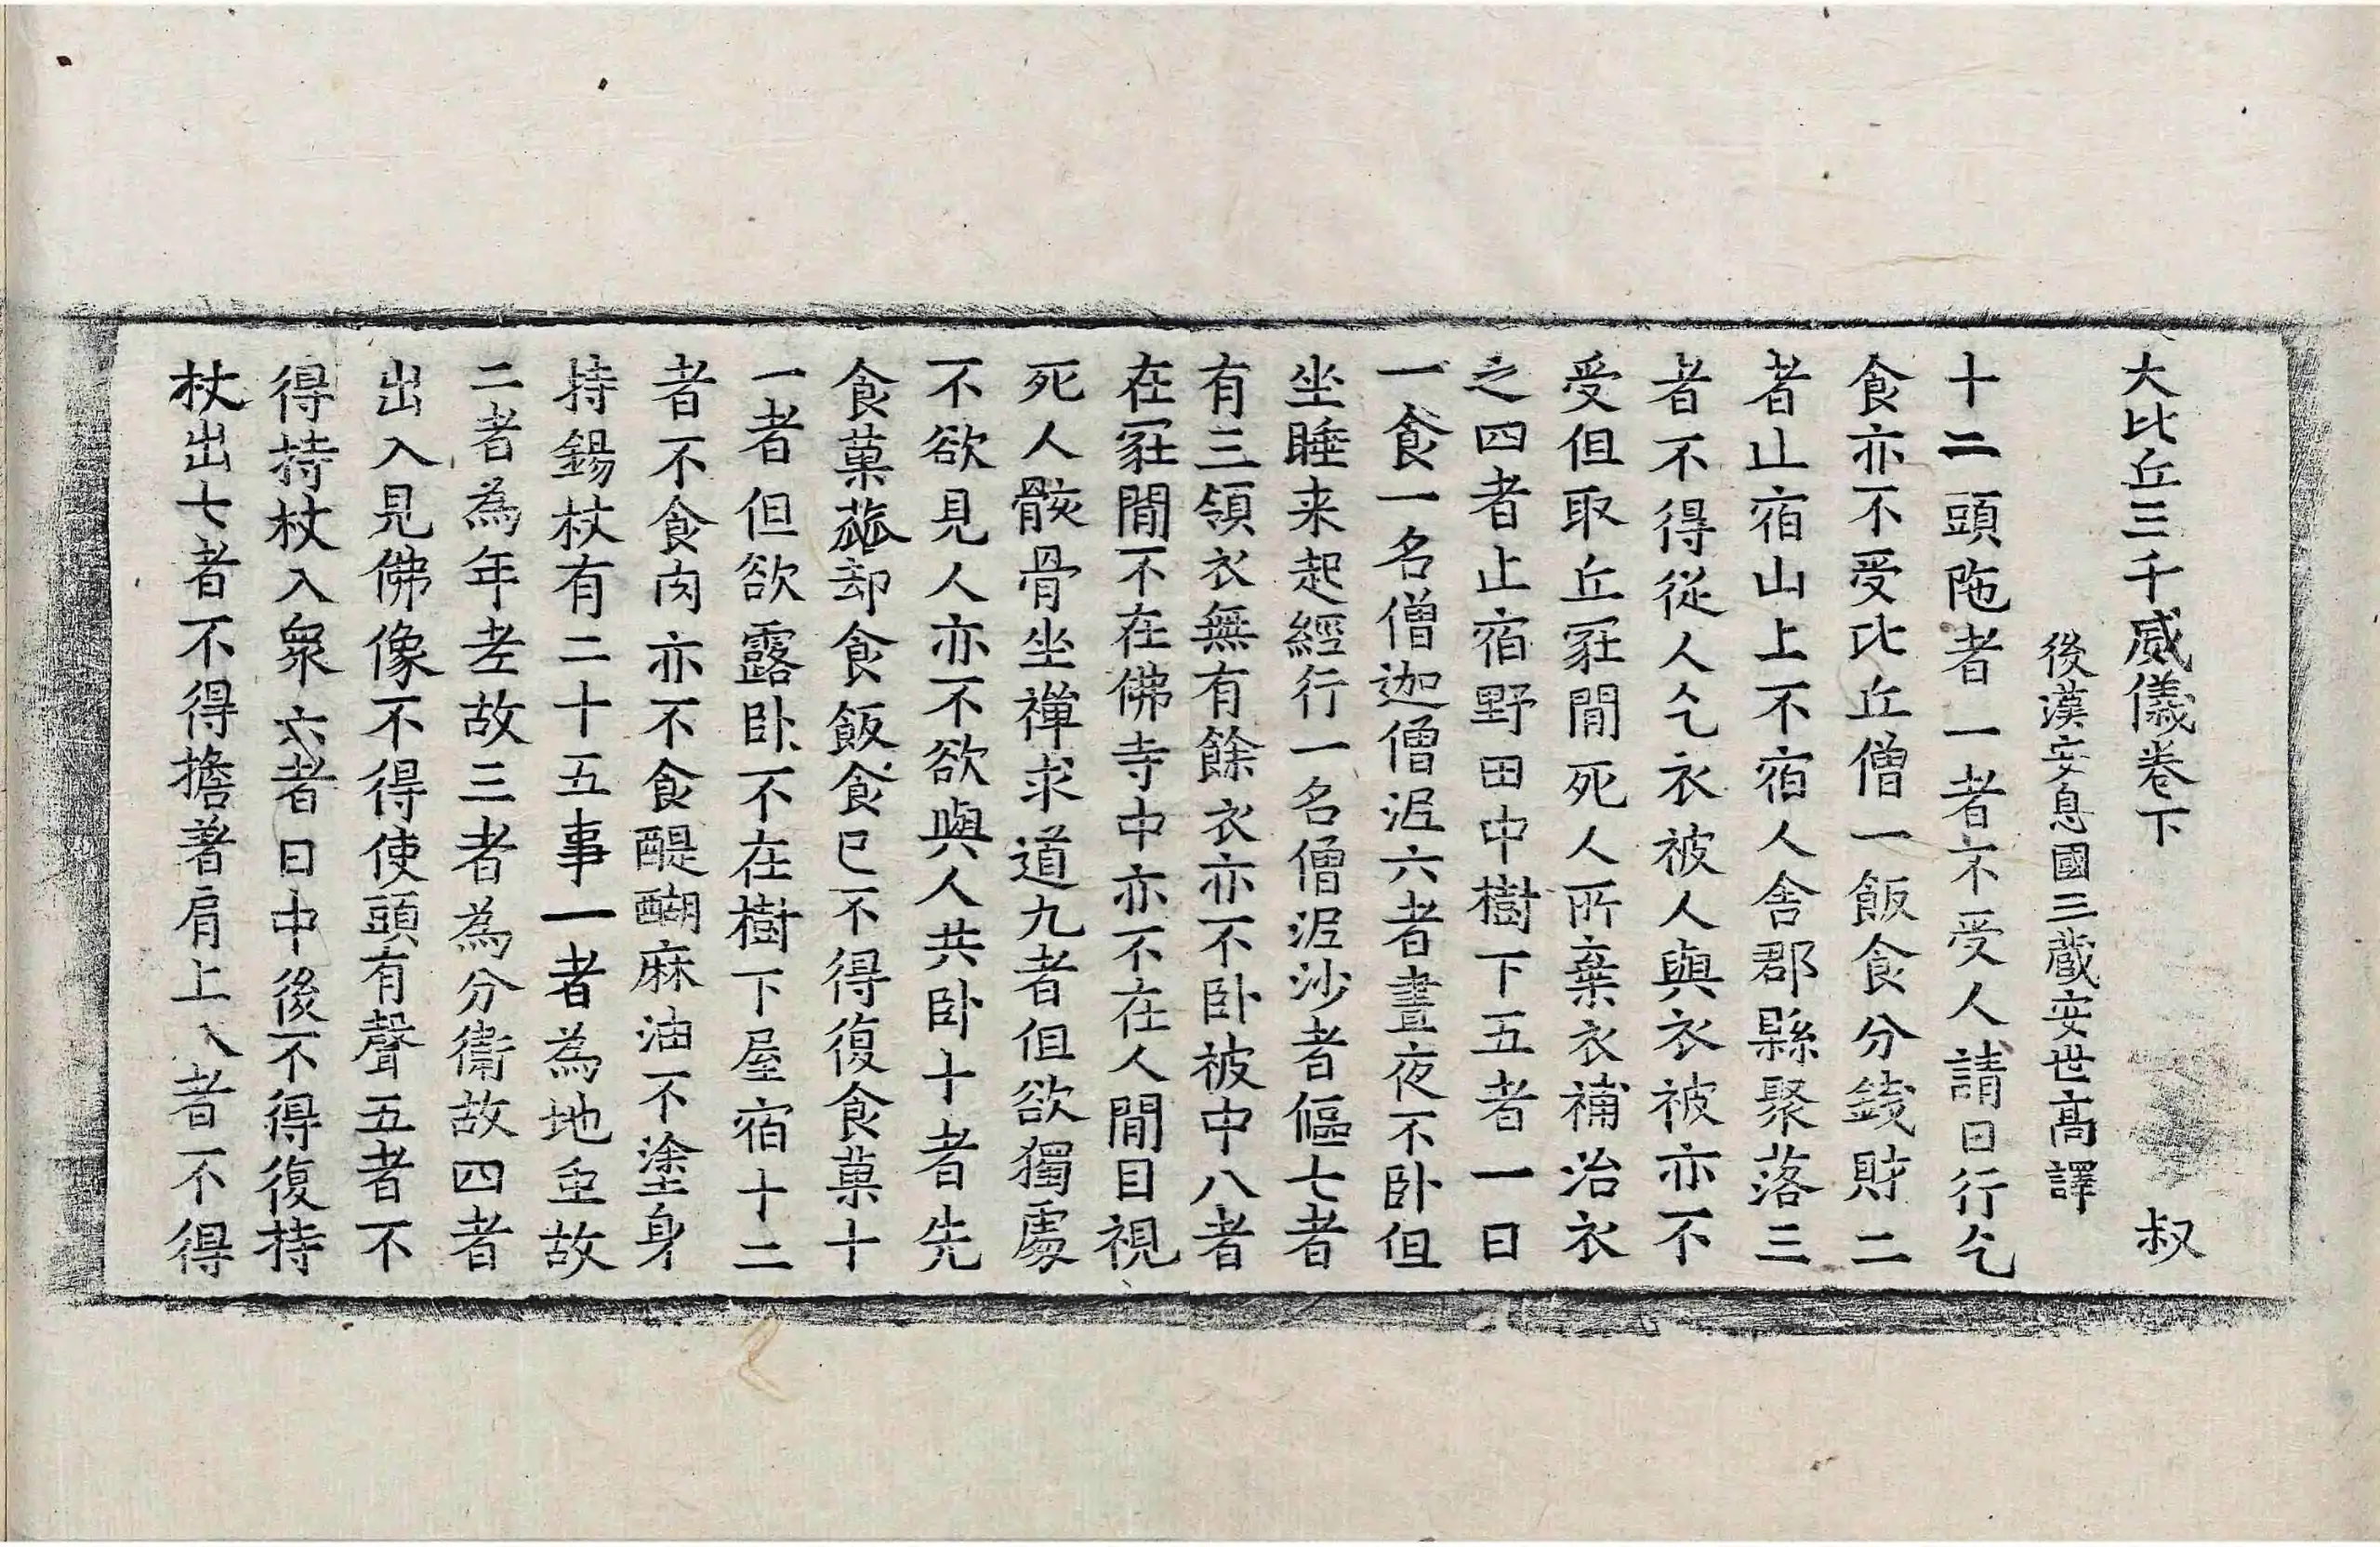 大比丘三千威儀卷下 叔
後漢安息國三藏安世高譯
十二頭陁者一者不受人請日行乞
食亦不受比丘僧一飯食分錢財二
者止宿山上不宿人舍郡縣聚落三
者不得從人乞衣被人與衣被亦不
受但取丘冢間死人所棄衣補治衣
之四者止宿野田中樹下五者一日
一食一名僧迦僧泥六者晝夜不卧但
坐睡来起經行一名僧泥沙者傴七者
有三領衣無有餘衣亦不卧被中八者
在冢間不在佛寺中亦不在人間目視
死人骸骨坐禪求道九者但欲獨處
不欲見人亦不欲與人共卧十者先
食菓蓏却食飯食已不得復食菓十
一者但欲露卧不在樹下屋宿十二
者不食肉亦不食醍醐麻油不塗身
持錫杖有二十五事一者為地虫故
二者為年老故三者為分衛故四者
出入見佛像不得使頭有聲五者不
得持杖入衆六者日中後不得復持
杖出七者不得擔著肩上八者不得